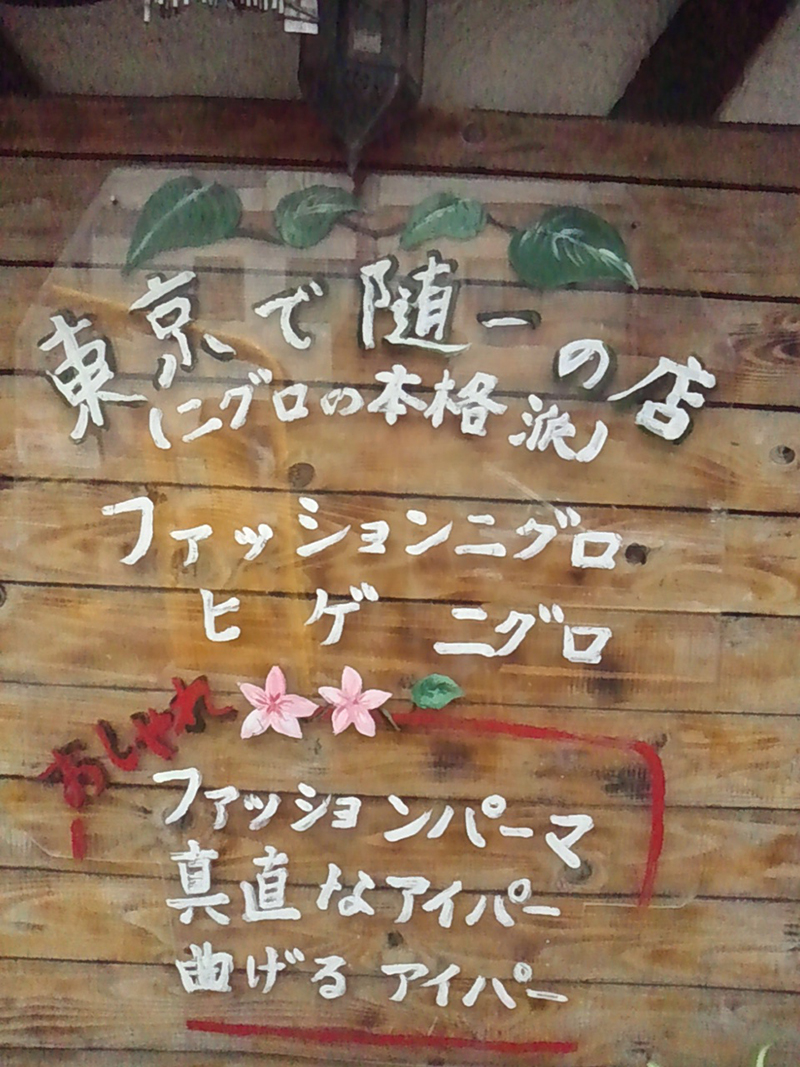 東京で随一の店
(ニグロの本格派)
ファッションニグロ
ヒゲニグロ
おしゃれ
ファッションパーマ
真直なアイパー
曲げるアイパー